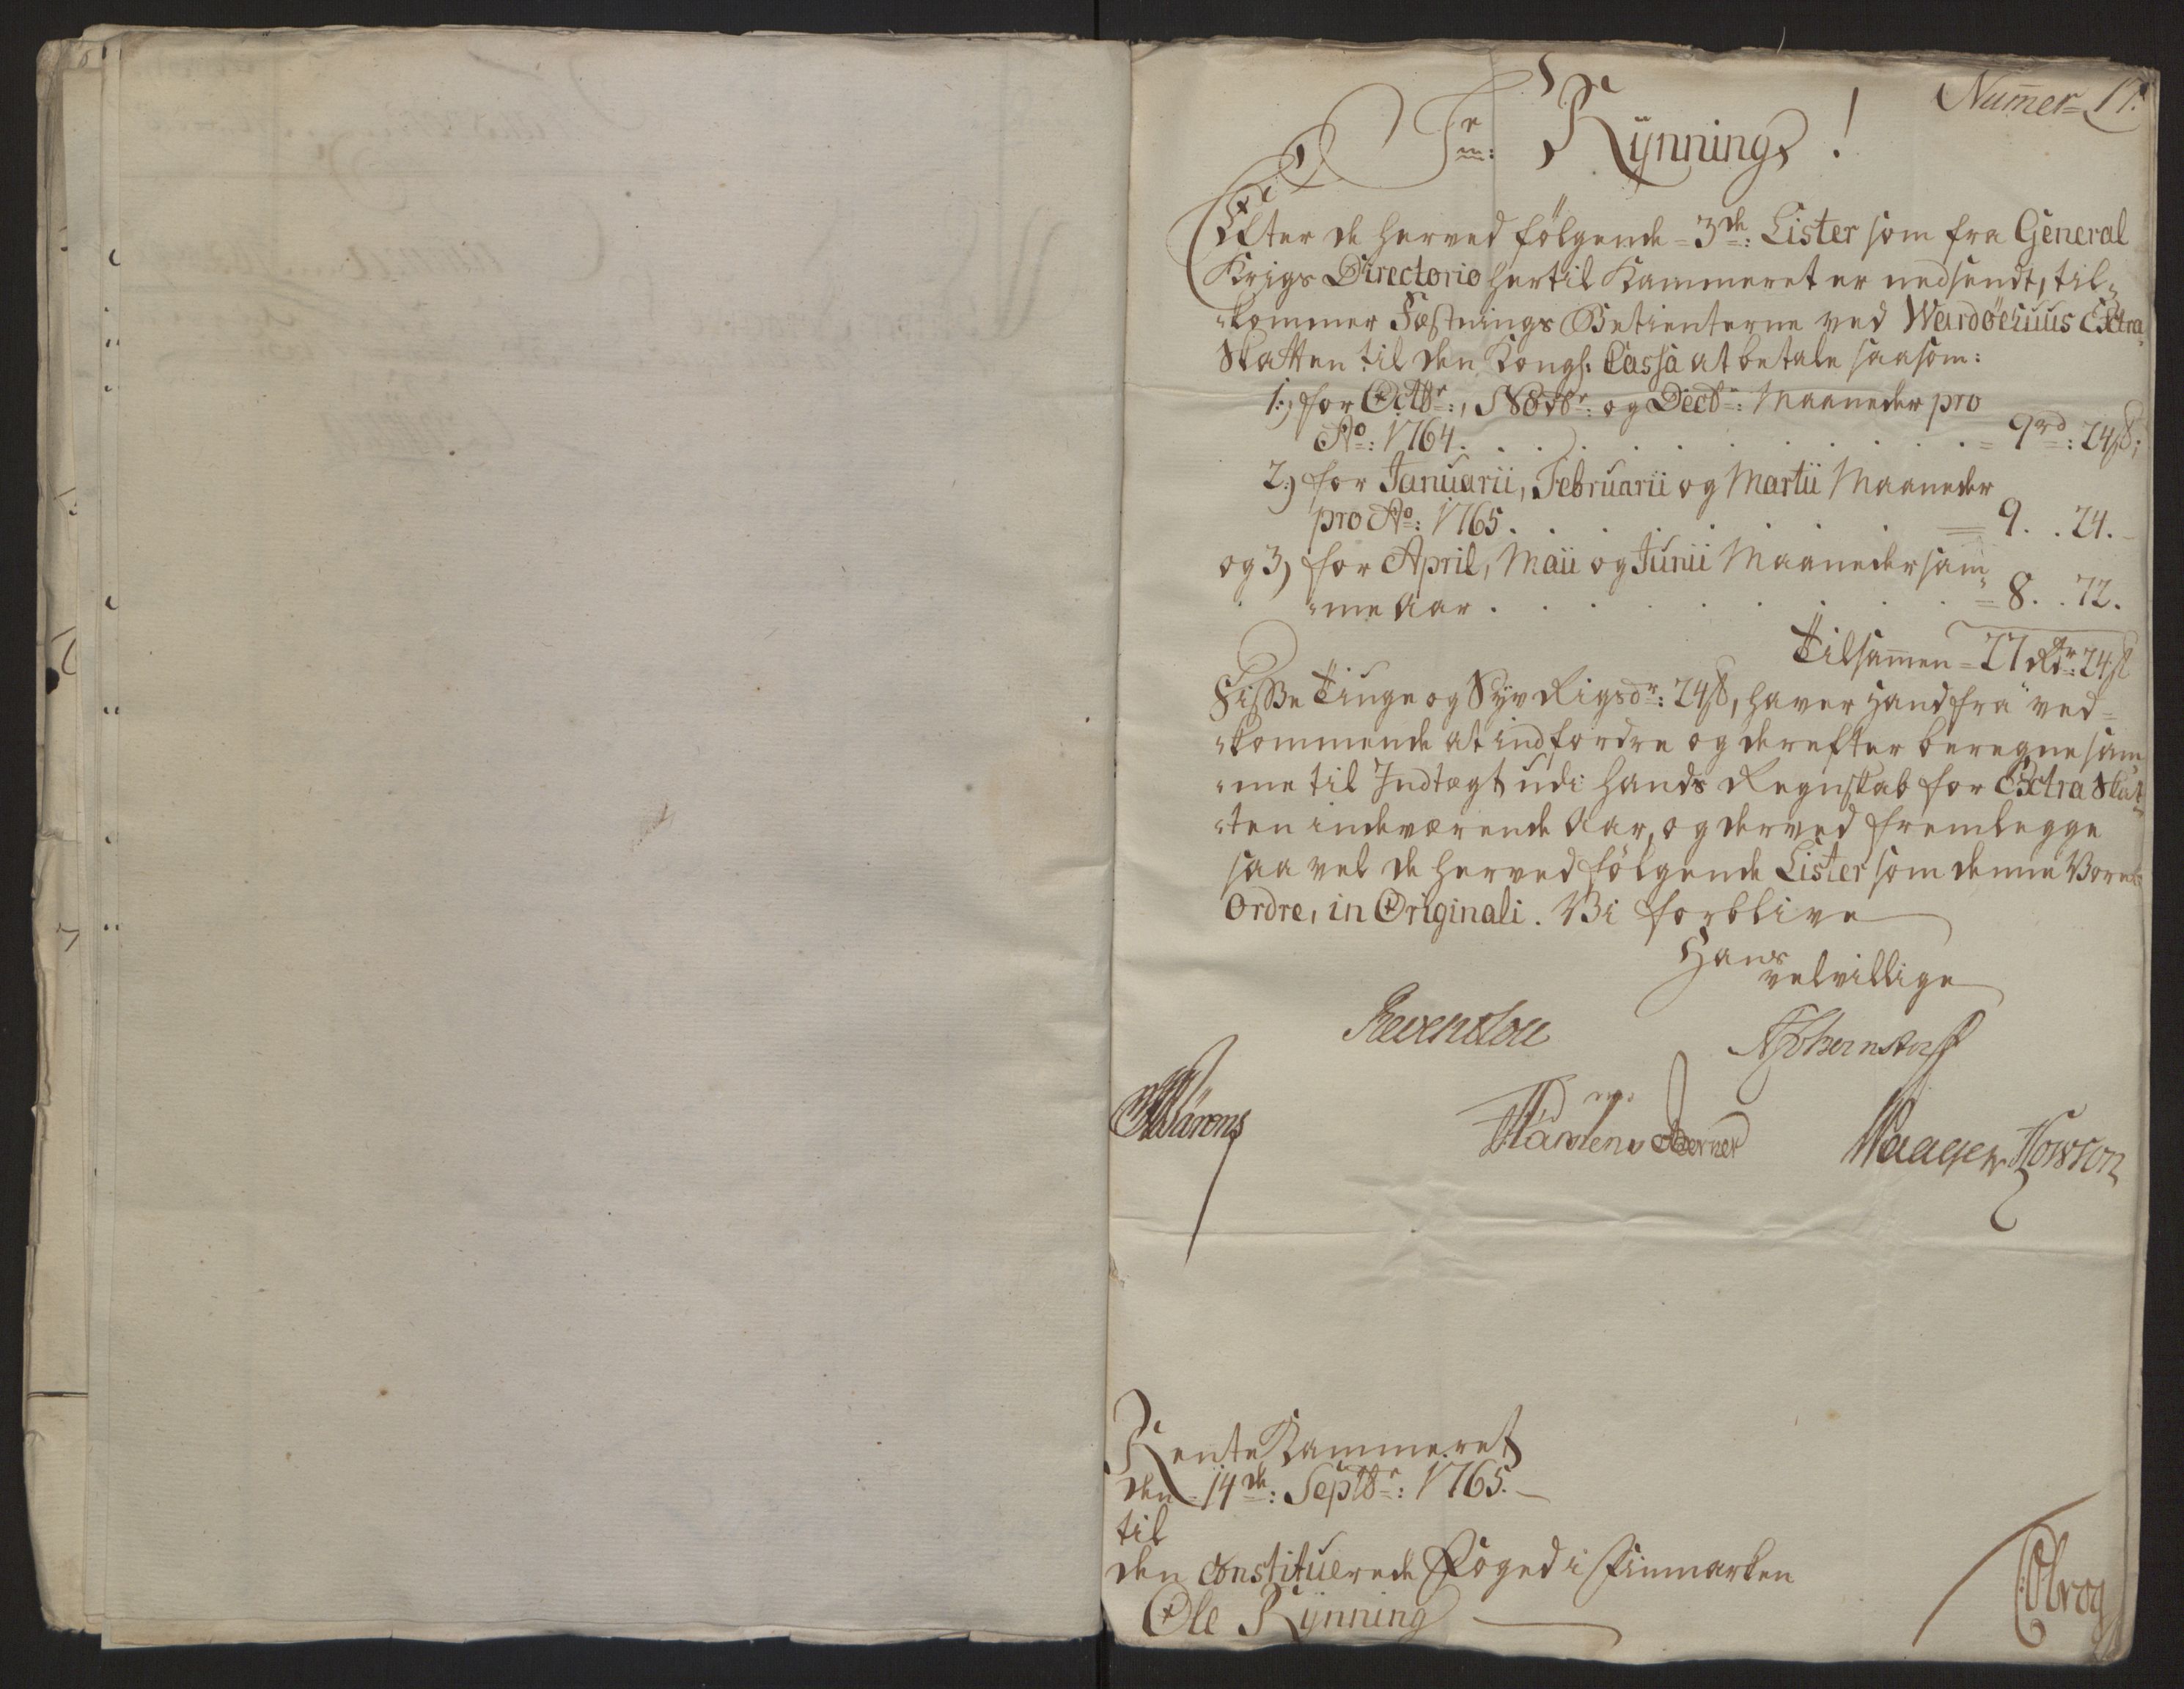 Numer= 17.
Sr: Rÿnning!
Efter de herved følgende 3de: Lister som fra General
Krigs Directorio hertil Kammeret er nedsendt, til-
kommer Fæstnings Betienterne ved Wardöehuus Extra
Skatten til den Kongl. Cassa at betale saasom:
1.) for Octbr:, Novbr: og Decbr: Maaneder pro
Ao: 1764. . . . = 9rd: 24ß;
2.) for Januarii, Februarii og Martii Maaneder
pro Ao: 1765. . . . = 9. . 24.
og 3) for April, Maii og Junii Maaneder sam-
me Aar . . . . = 8. . 72.
Tilsamen = 27 Rdr: 24ß
Disse Tiuge og Syv Rigsdr: 24ß, haver Hand fra ved-
kommende at indfordre og derefter beregne sam-
me til Indtægt udi hands Regnskab for Extra Skat-
ten indeværende Aar, og derved fremlegge
saa vel de herved følgende Lister som denne Vores
Ordre, in Originali. Vi forblive
Hans
velvillige
Reventlou
Bärens
Berner
RenteKammeret
den 14de: Septbr: 1765.
til
den Constituerede Foged i Finmarken
Ole Rÿnning
Olrog